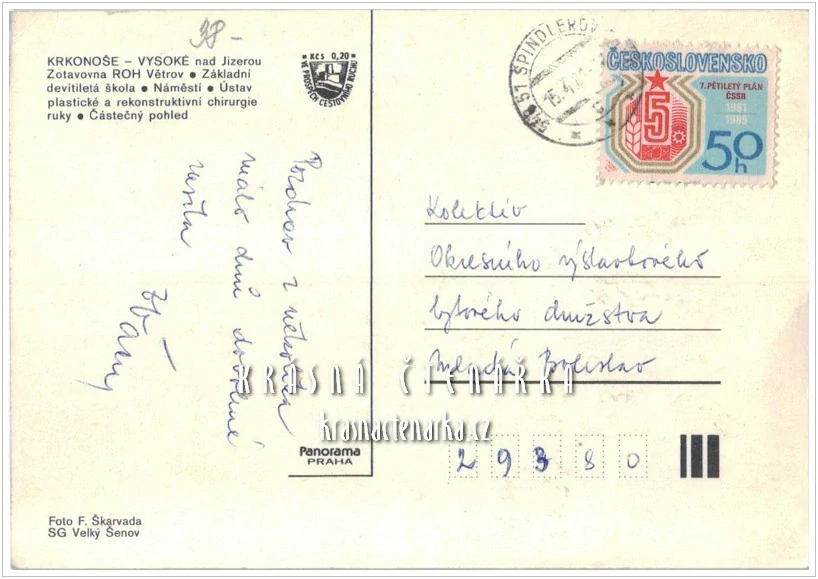 38-
KRKONOŠE – VYSOKÉ nad Jizerou
Zotavovna ROH Větrov ● Základní
devítiletá škola ● Náměstí ● Ústav
plastické a rekonstruktivní chirurgie
ruky ● Částečný pohled
Kčs 0,20
VE PROSPĚCH CESTOVNÍHO RUCHU
Pozdrav z několika
málo dnů dovolené
51 ŠPINDLERŮV
15.4.
ČESKOSLOVENSKO
7. PĚTILETÝ PLÁN
ČSSR
1981
1985
5
50 h
Kolektiv
Okresního výstavbového
bytového družstva
Mladá Boleslav
KRÁSNÁ ČTENÁŘKA
krasnactenarka.cz
29380
Panorama
PRAHA
Foto F. Škarvada
SG Velký Šenov